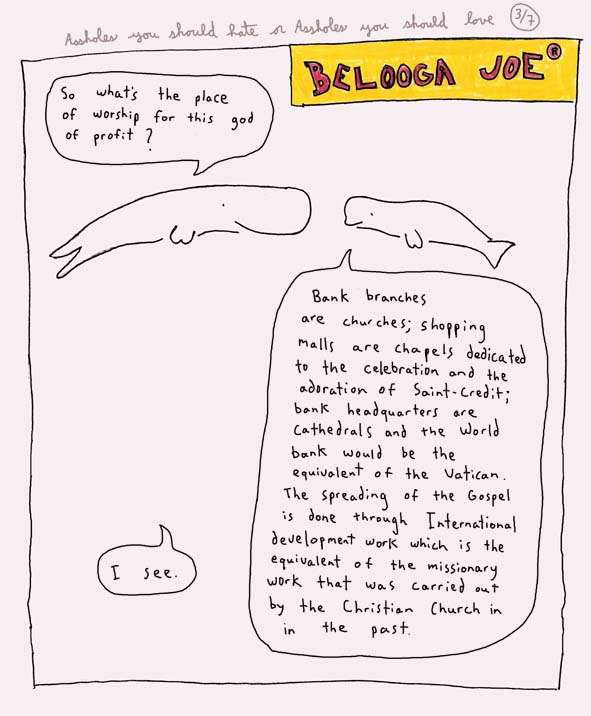 Assholes you should hate or Assholes you should love 3/7
BELOOGA JOE®
So what's the place
of worship for this god
of profit?
Bank branches
are churches; shopping
malls are chapels dedicated
to the celebration and the
adoration of Saint-Credit;
bank headquarters are
cathedrals and the World
bank would be the
equivalent of the Vatican.
The spreading of the Gospel
is done through International
development work which is the
equivalent of the missionary
work that was carried out
by the Christian Church in
in the past.
I see.